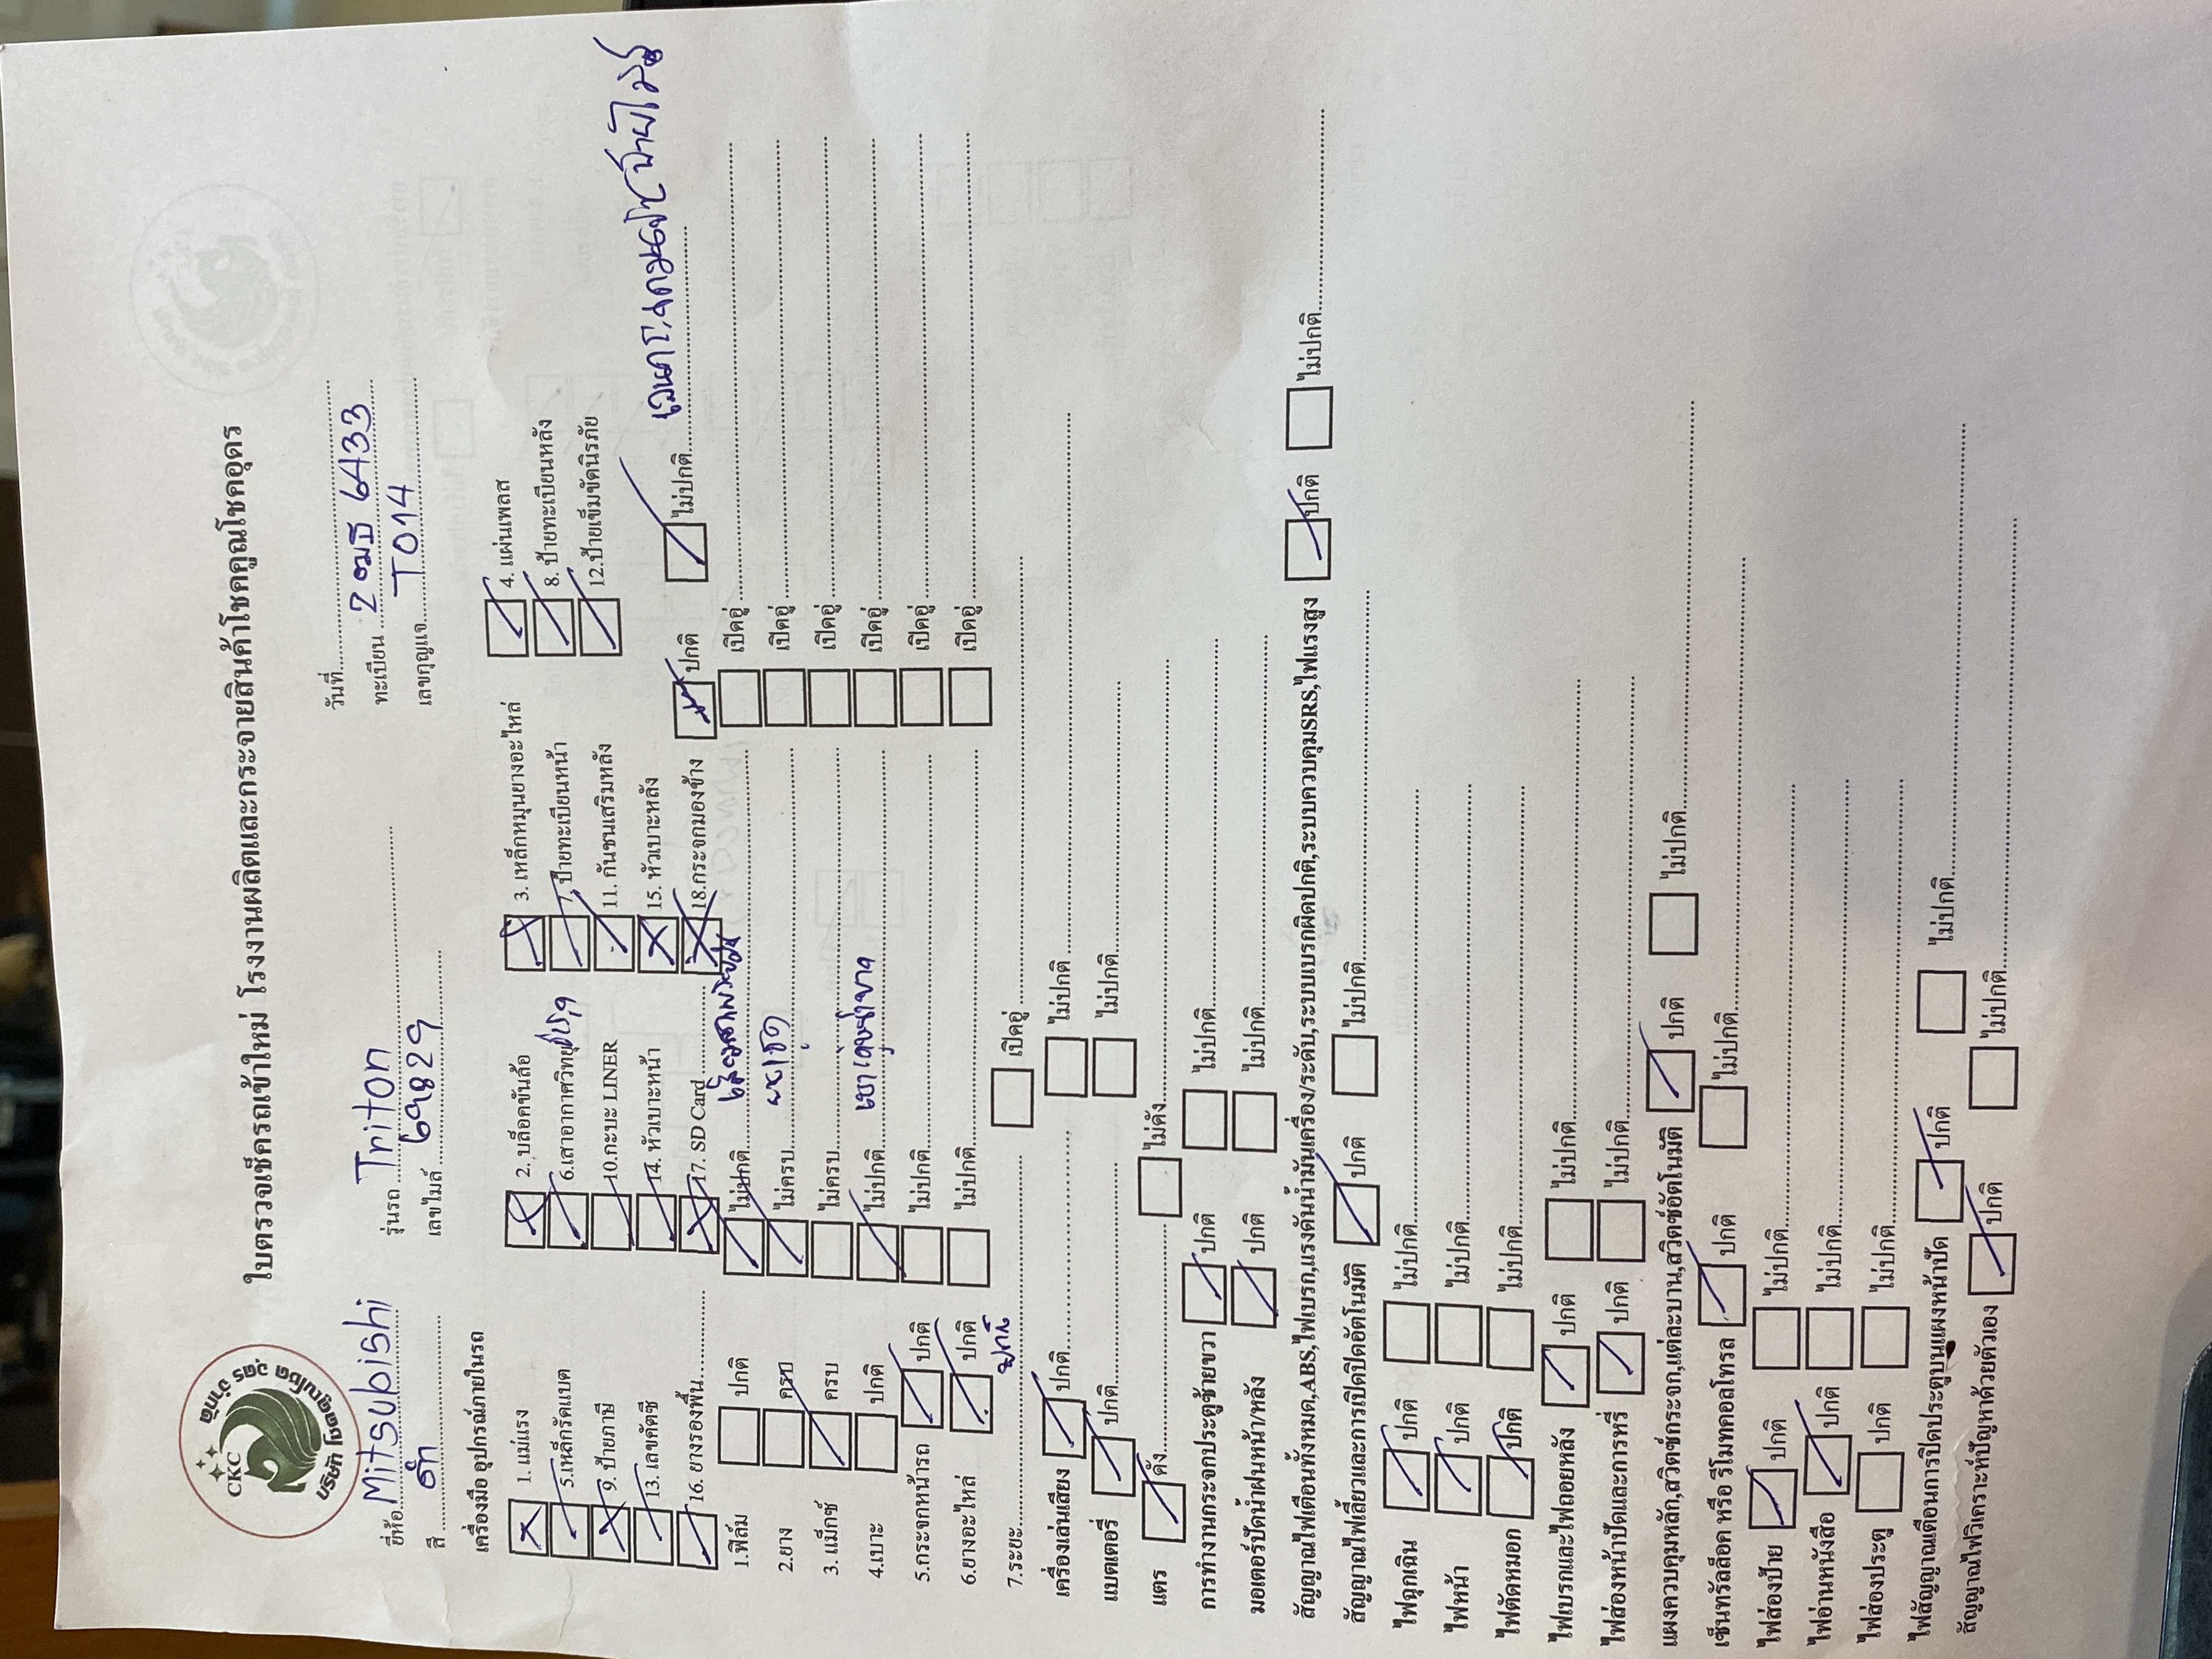 CKC
บริษัท โชคคูณโชค อุดร จำกัด
ใบตรวจเช็ครถเข้าใหม่ โรงงานผลิตและกระจายสินค้าโชคคูณโชคอุดร
วันที่
ยี่ห้อ Mitsubishi รุ่นรถ Triton ทะเบียน 2ฒธ 6433
สี ดำ เลขไมล์ 69829 เลขกุญแจ T014
เครื่องมือ อุปกรณ์ภายในรถ
1. แม่แรง 2. บล็อคขันล้อ 3. เหล็กหมุนยางอะไหล่ 4. แผ่นเพลส
5.เหล็กรัดแบต 6.เสาอากาศวิทยุ ชำรุด 7. ป้ายทะเบียนหน้า 8. ป้ายทะเบียนหลัง
9. ป้ายภาษี 10.กะบะ LINER 11. กันชนเสริมหลัง 12.ป้ายเข็มขัดนิรภัย
13. เลขคัตซี 14. หัวเบาะหน้า 15. หัวเบาะหลัง
16. ยางรองพื้น 17. SD Card 18.กระจกมองข้าง ปกติ ไม่ปกติ
1.ฟิล์ม ปกติ ไม่ปกติ เปิดอู่
2.ยาง ครบ ไม่ครบ เปิดอู่
3. แม็กซ์ ครบ ไม่ครบ เปิดอู่
4.เบาะ ปกติ ไม่ปกติ เปิดอู่
5.กระจกหน้ารถ ปกติ ไม่ปกติ เปิดอู่
6.ยางอะไหล่ ปกติ ไม่ปกติ เปิดอู่
7.ระยะ ปกติ เปิดอู่
เครื่องเล่นเสียง ปกติ ไม่ปกติ
แบตเตอรี่ ปกติ ไม่ปกติ
แตร ดัง ไม่ดัง
การทำงานกระจกประตูซ้ายขวา ปกติ ไม่ปกติ
มอเตอร์ปัดน้ำฝนหน้า/หลัง ปกติ ไม่ปกติ
สัญญาณไฟเตือนทั้งหมด,ABS,ไฟเบรก,แรงดันน้ำมันเครื่อง/ระดับ,ระบบเบรกผิดปกติ,ระบบควบคุมSRS,ไฟแรงสูง ปกติ ไม่ปกติ
สัญญาณไฟเลี้ยวและการเปิดปิดอัตโนมัติ ปกติ ไม่ปกติ
ไฟฉุกเฉิน ปกติ ไม่ปกติ
ไฟหน้า ปกติ ไม่ปกติ
ไฟตัดหมอก ปกติ ไม่ปกติ
ไฟเบรกและไฟถอยหลัง ปกติ ไม่ปกติ
ไฟส่องหน้าปัดและการหรี่ ปกติ ไม่ปกติ
แผงควบคุมหลัก,สวิตซ์กระจก,แต่ละบาน,สวิตซ์อัตโนมัติ ปกติ ไม่ปกติ
เซ็นทรัลล็อค หรือ รีโมทคอลโทรล ปกติ ไม่ปกติ
ไฟส่องป้าย ปกติ ไม่ปกติ
ไฟอ่านหนังสือ ปกติ ไม่ปกติ
ไฟส่องประตู ปกติ ไม่ปกติ
ไฟสัญญาณเตือนการปิดประตูบนแผงหน้าปัด ปกติ ไม่ปกติ
สัญญาณไฟวิเคราะห์ปัญหาด้วยตัวเอง ปกติ ไม่ปกติ